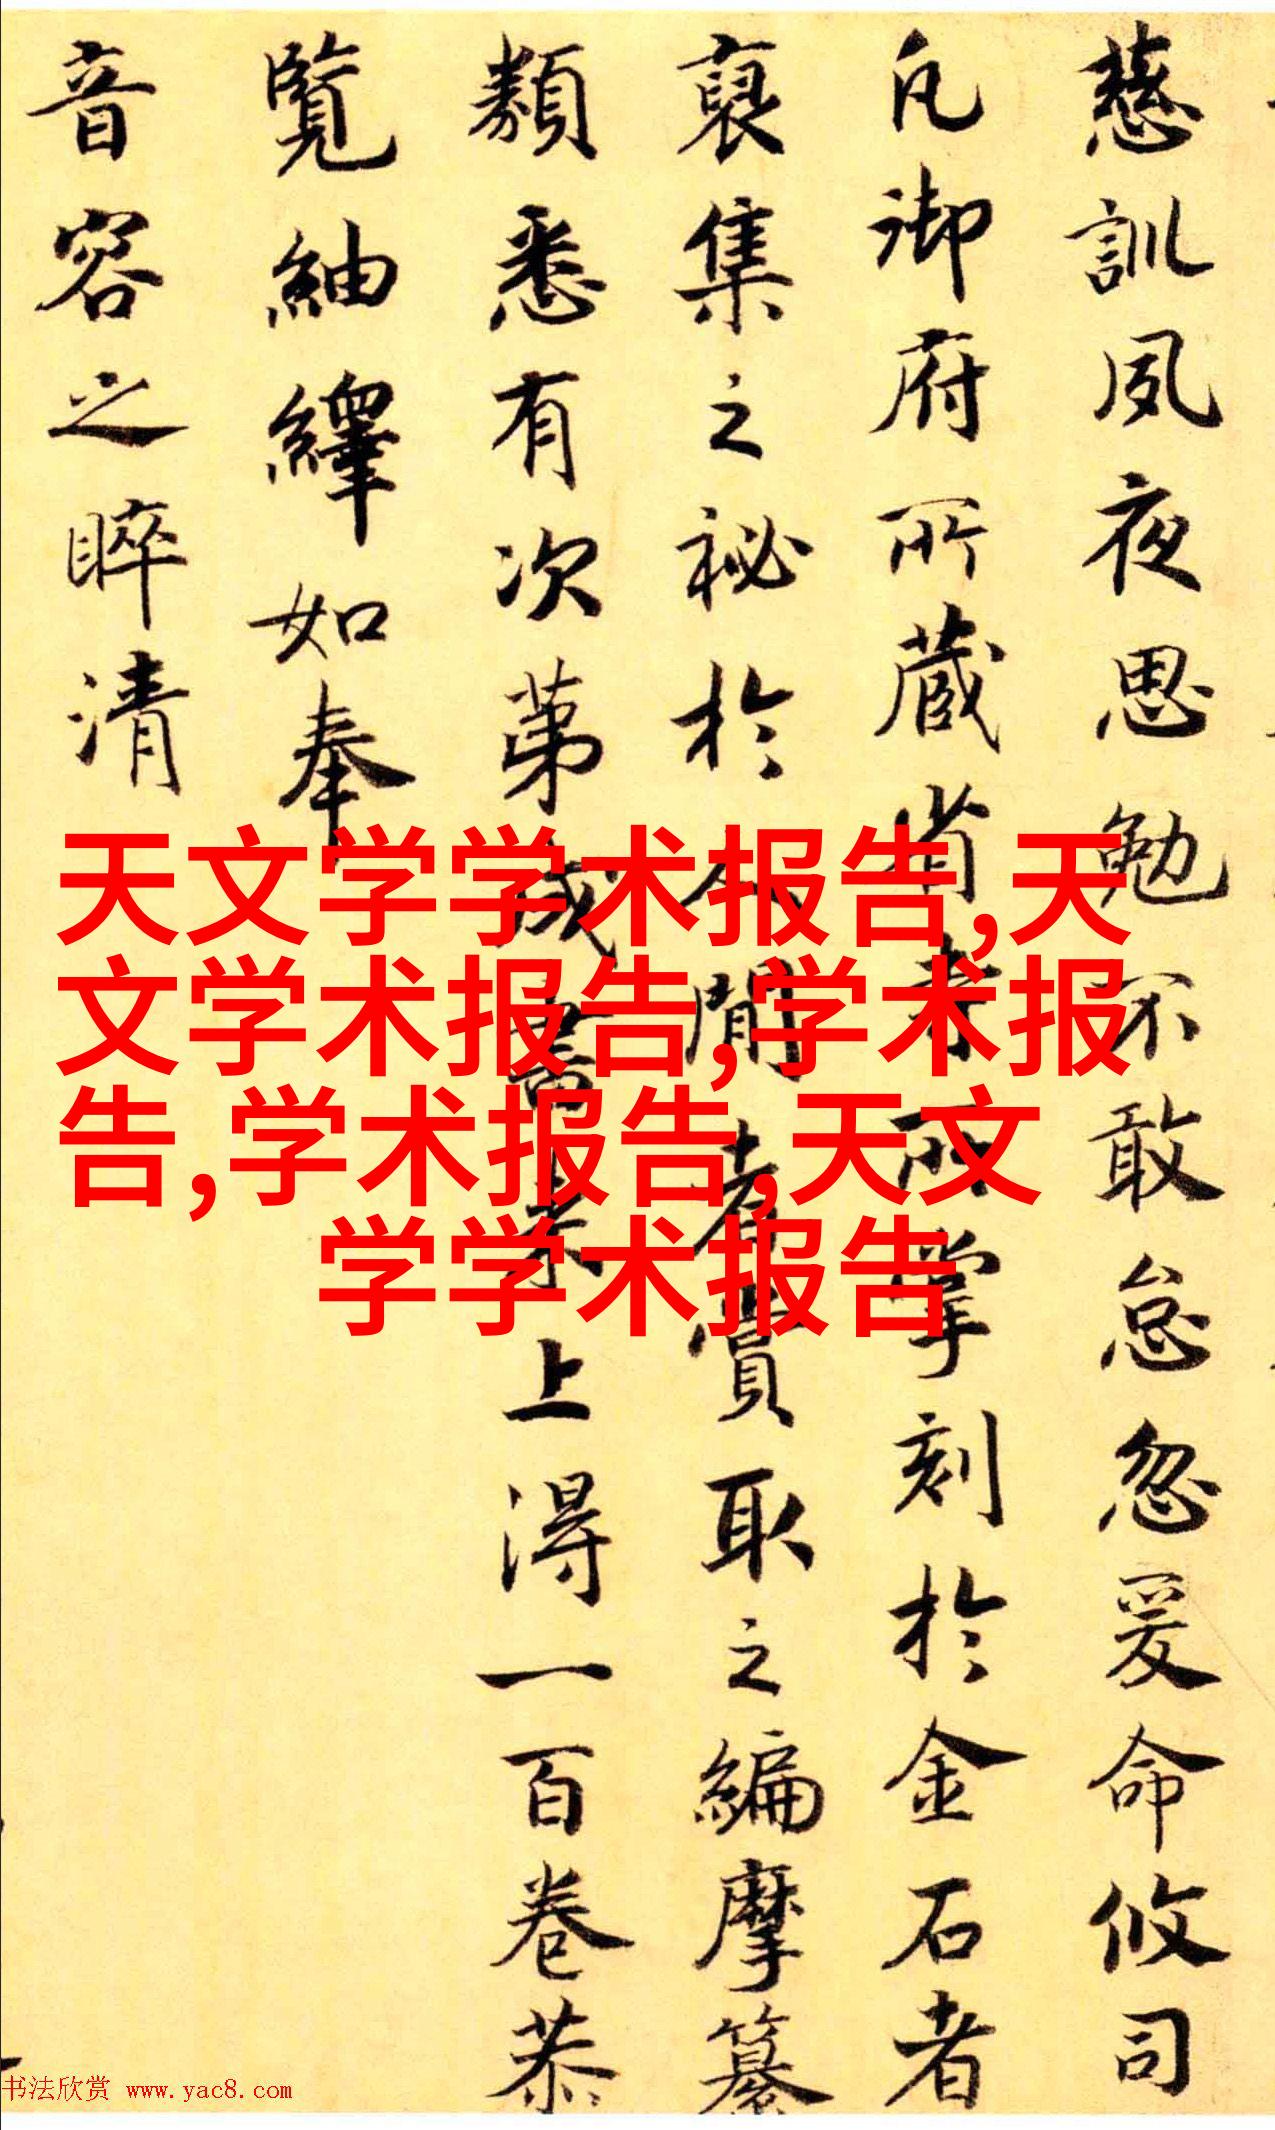 慈訓夙夜思勉不敢怠忽爰命攸司
凡御府所藏省寺所掌刻於金石者
裒集之秘於人間者賞取之編摩纂
類悉有次第成書來上得一百卷恭
覽紬繹如奉
音容之睟清
天文学学术报告,天
文学术报告,学术报
告,学术报告,天文
学学术报告
书法欣赏 www.yac8.com